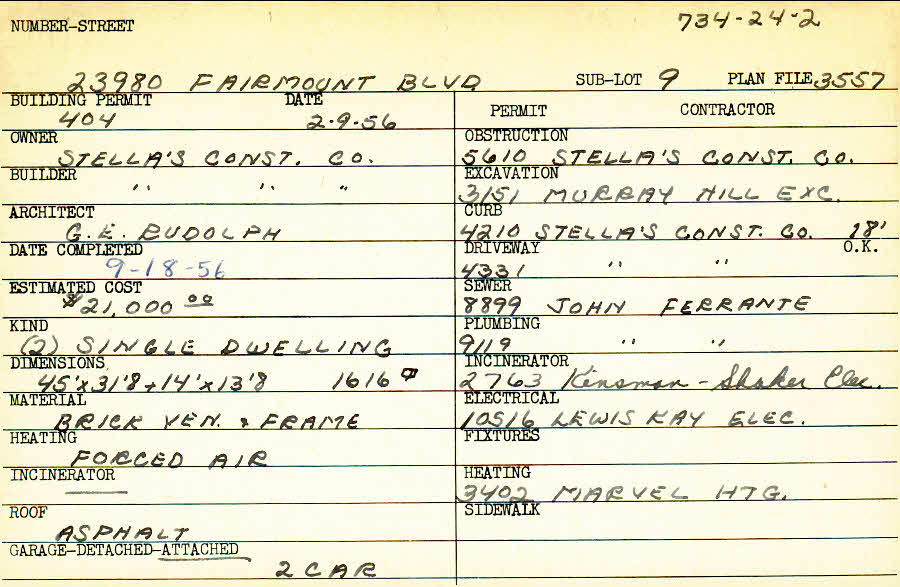 734-24-2
NUMBER-STREET
23980 FAIRMOUNT BLVD SUB-LOT 9 PLAN FILE 3557
BUILDING PERMIT DATE
404 2-9-56
OWNER
STELLA'S CONST. CO.
BUILDER
" " "
ARCHITECT
G. E. RUDOLPH
DATE COMPLETED
9-18-56
ESTIMATED COST
$21,000 00
KIND
(2) SINGLE DWELLING
DIMENSIONS
45'x31'8+14'x13'8 1616
MATERIAL
BRICK VEN. & FRAME
HEATING
FORCED AIR
INCINERATOR
ROOF
ASPHALT
GARAGE-DETACHED-ATTACHED
2 CAR
PERMIT CONTRACTOR
OBSTRUCTION
5610 STELLA'S CONST. CO.
EXCAVATION
3151 MURRAY HILL EXC.
CURB
4210 STELLA'S CONST. CO. 18'
DRIVEWAY O.K.
4331 " "
SEWER
8899 JOHN FERRANTE
PLUMBING
9119 " "
INCINERATOR
2763 Kinsman-Shaker Elec.
ELECTRICAL
10516 LEWIS KAY ELEC.
FIXTURES
HEATING
3402 MARVEL HTG.
SIDEWALK